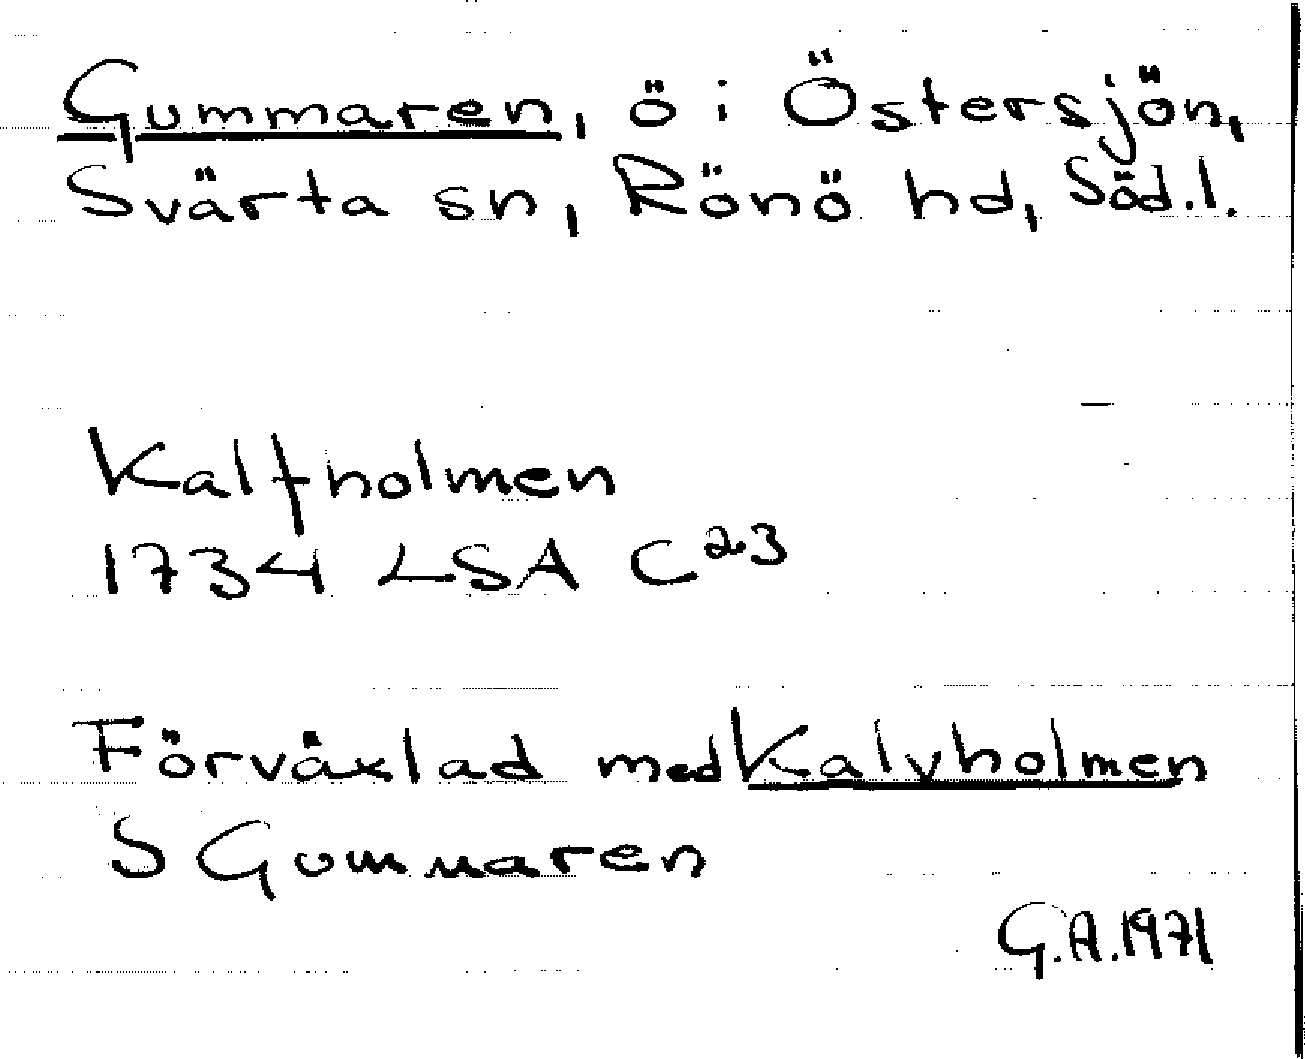 Gummaren, ö i Östersjön,
Svärta sn, Rönö hd, Söd.l.
Kalfholmen
1734 LSA C23
Förväxlad med Kalvholmen
S Gummaren
G.A.1971